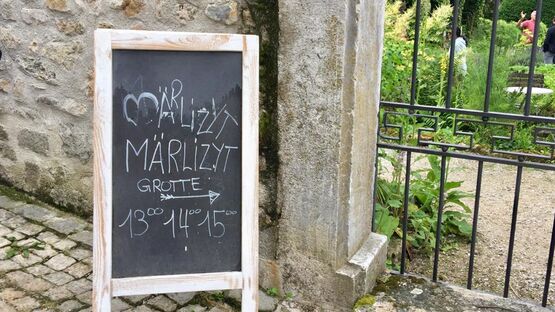 BÄRLIZYT
MÄRLIZYT
GROTTE →
13⁰⁰ 14⁰⁰ 15⁰⁰